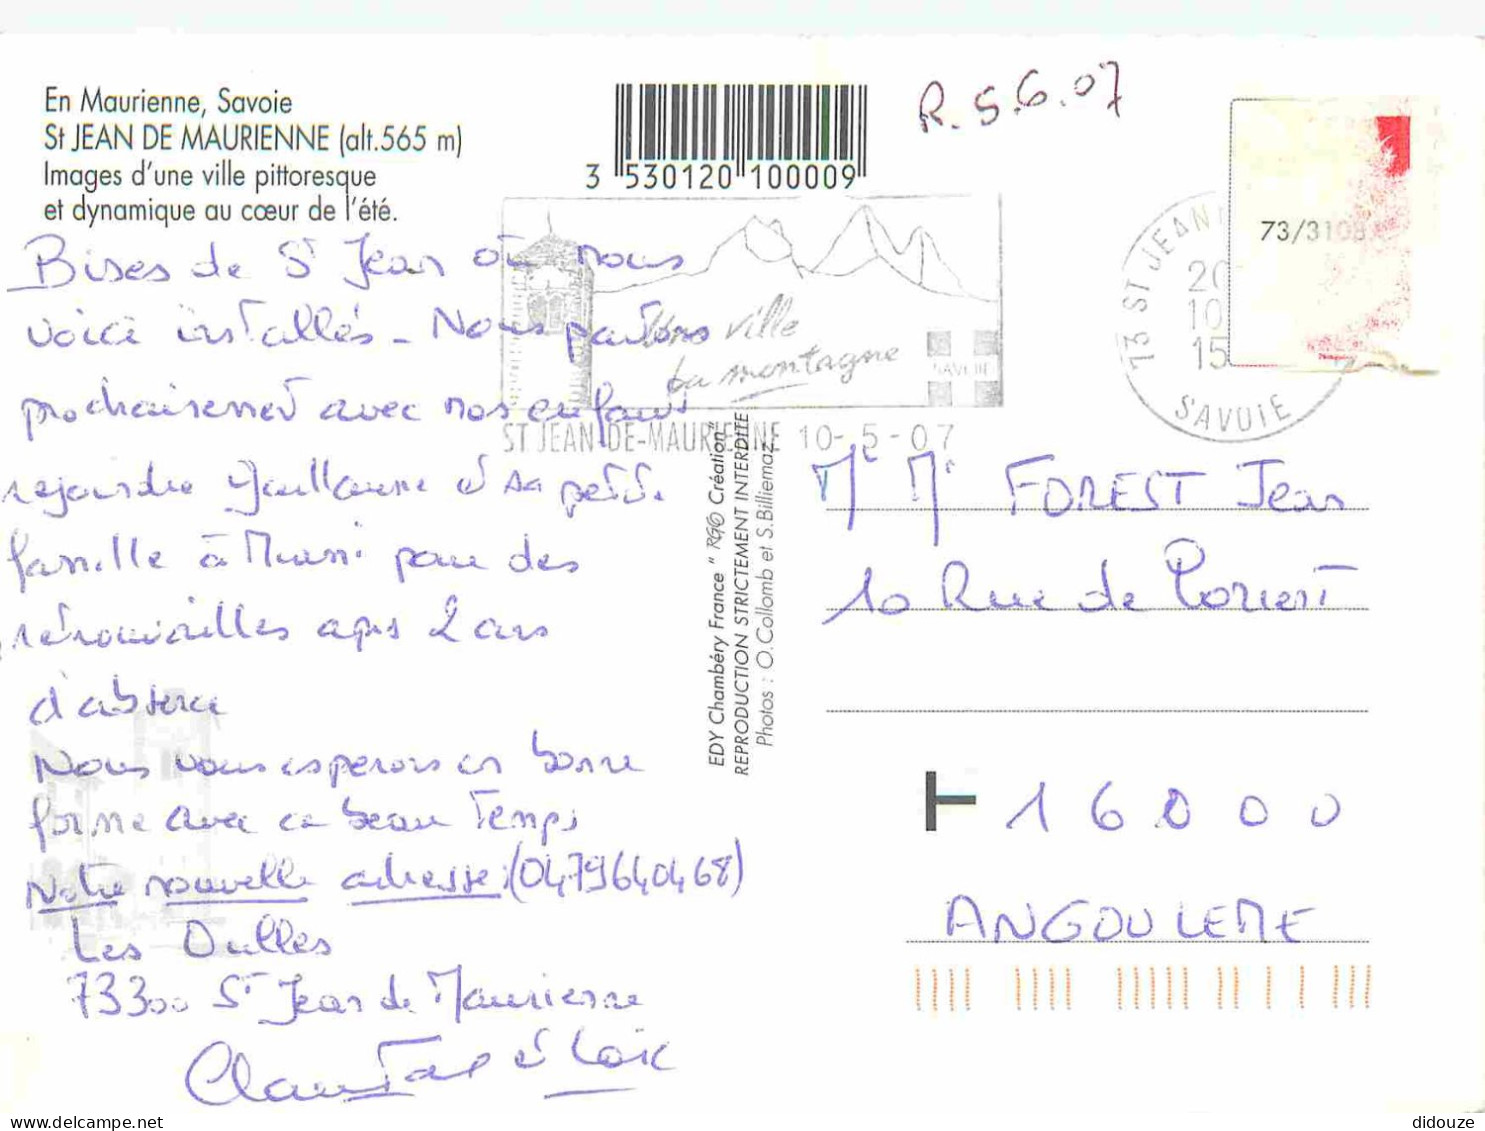 En Maurienne, Savoie
St JEAN DE MAURIENNE (alt.565 m)
Images d'une ville pittoresque
et dynamique au cœur de l'été.
3 530120 100009
R. 5.6.07
73/3108
73 ST JEAN
20
10
15
SAVOIE
Une ville
la montagne
SAVOIE
ST JEAN-DE-MAURIENNE 10-5-07
Bises de St Jean où nous
voici installés - Nous partons
prochainement avec nos enfants
rejoindre Guillaume et sa petite
famille à pour des
retrouvailles aprs 2 ans
d'absence
Nous vous esperons en bonne
forme avec ce beau Temps
Notre nouvelle adresse: (0479640468)
Les Oulles
73300 St Jean de Maurienne
et Loïc
EDY Chambéry France " RGO Création"
REPRODUCTION STRICTEMENT INTERDITE
Photos : O.Collomb et S.Billiemaz
Me Mr FOREST Jean
10 Rue de Lorient
T 16000
ANGOULEME
didouze